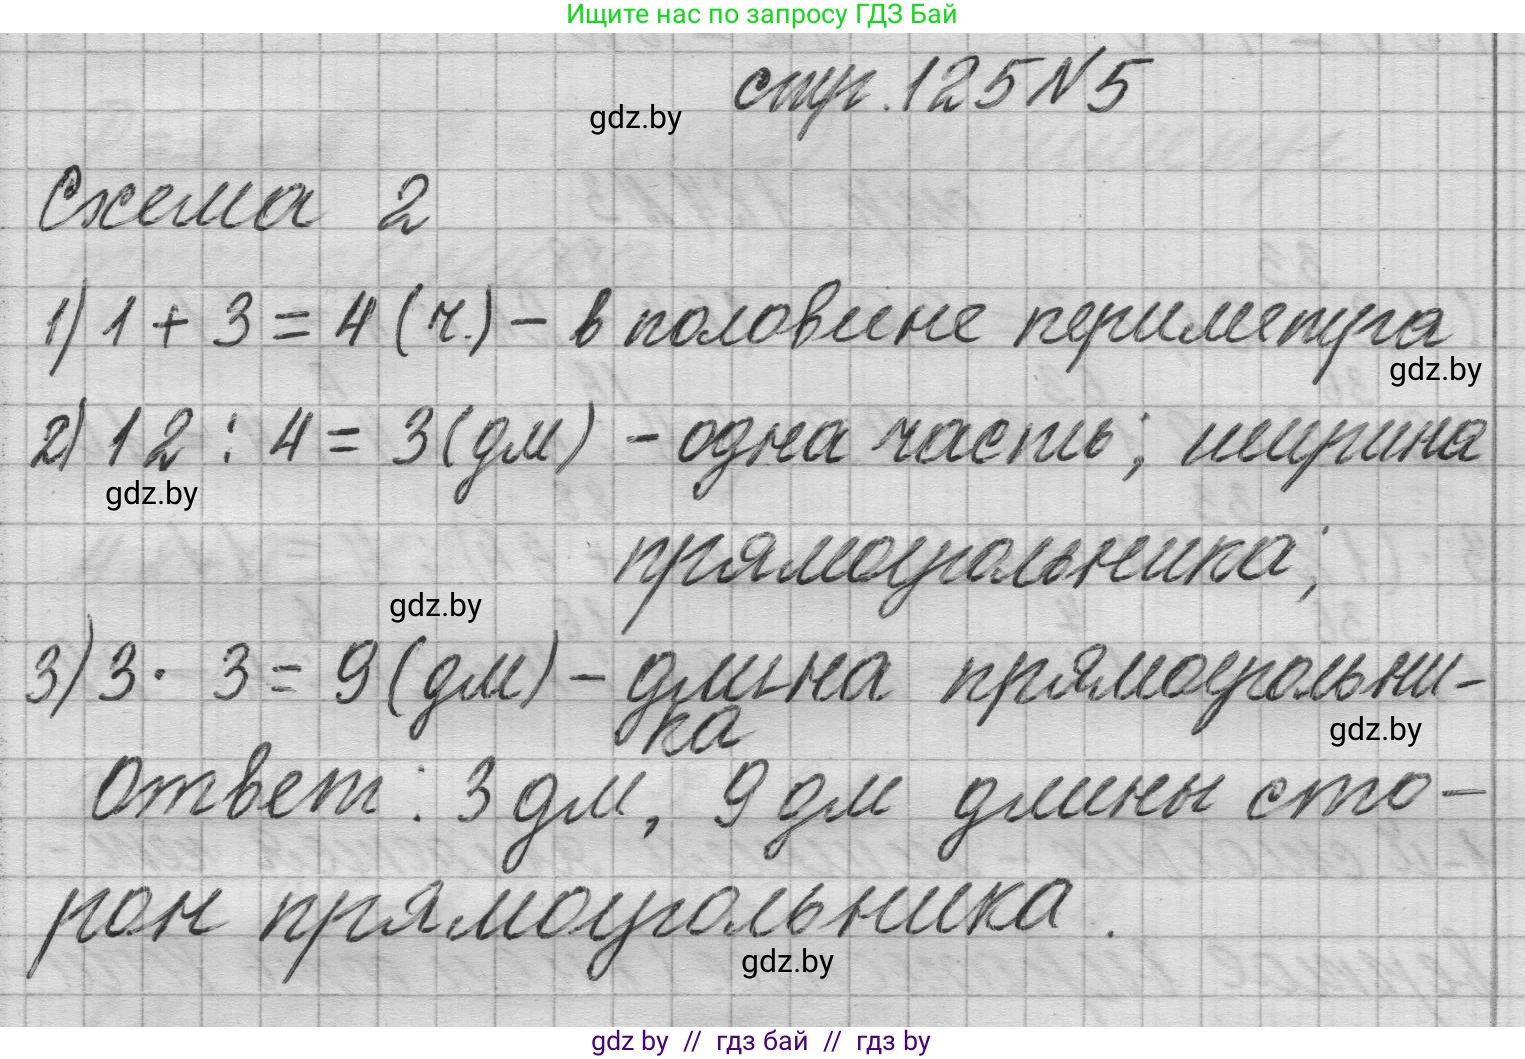 Ищите нас по запросу ГДЗ Бай
стр. 125 №5
gdz.by
Схема 2
1) 1 + 3 = 4 (ч.) – в половине периметра
gdz.by
2) 12 : 4 = 3 (дм) – одна часть; ширина
gdz.by
прямоугольника;
gdz.by
3) 3 · 3 = 9 (дм) – длина прямоугольни-
ка
gdz.by
Ответ: 3 дм, 9 дм длины сто-
рон прямоугольника.
gdz.by
gdz by // гдз бай // гдз by